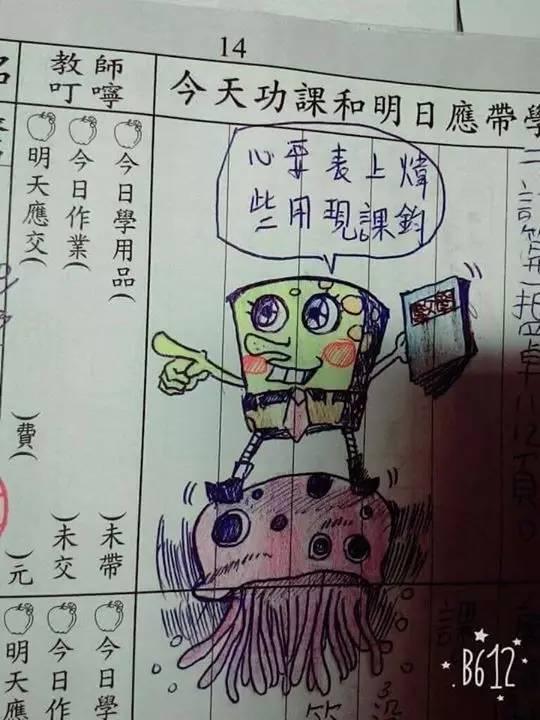 14
教師叮嚀
今天功課和明日應帶學
煒鈞
上課
表現
要用
心些
數學
今日學用品（　）未帶
今日作業（　）未交
明天應交（　）費（　）元
今日學
今日作
明天應
課
B612